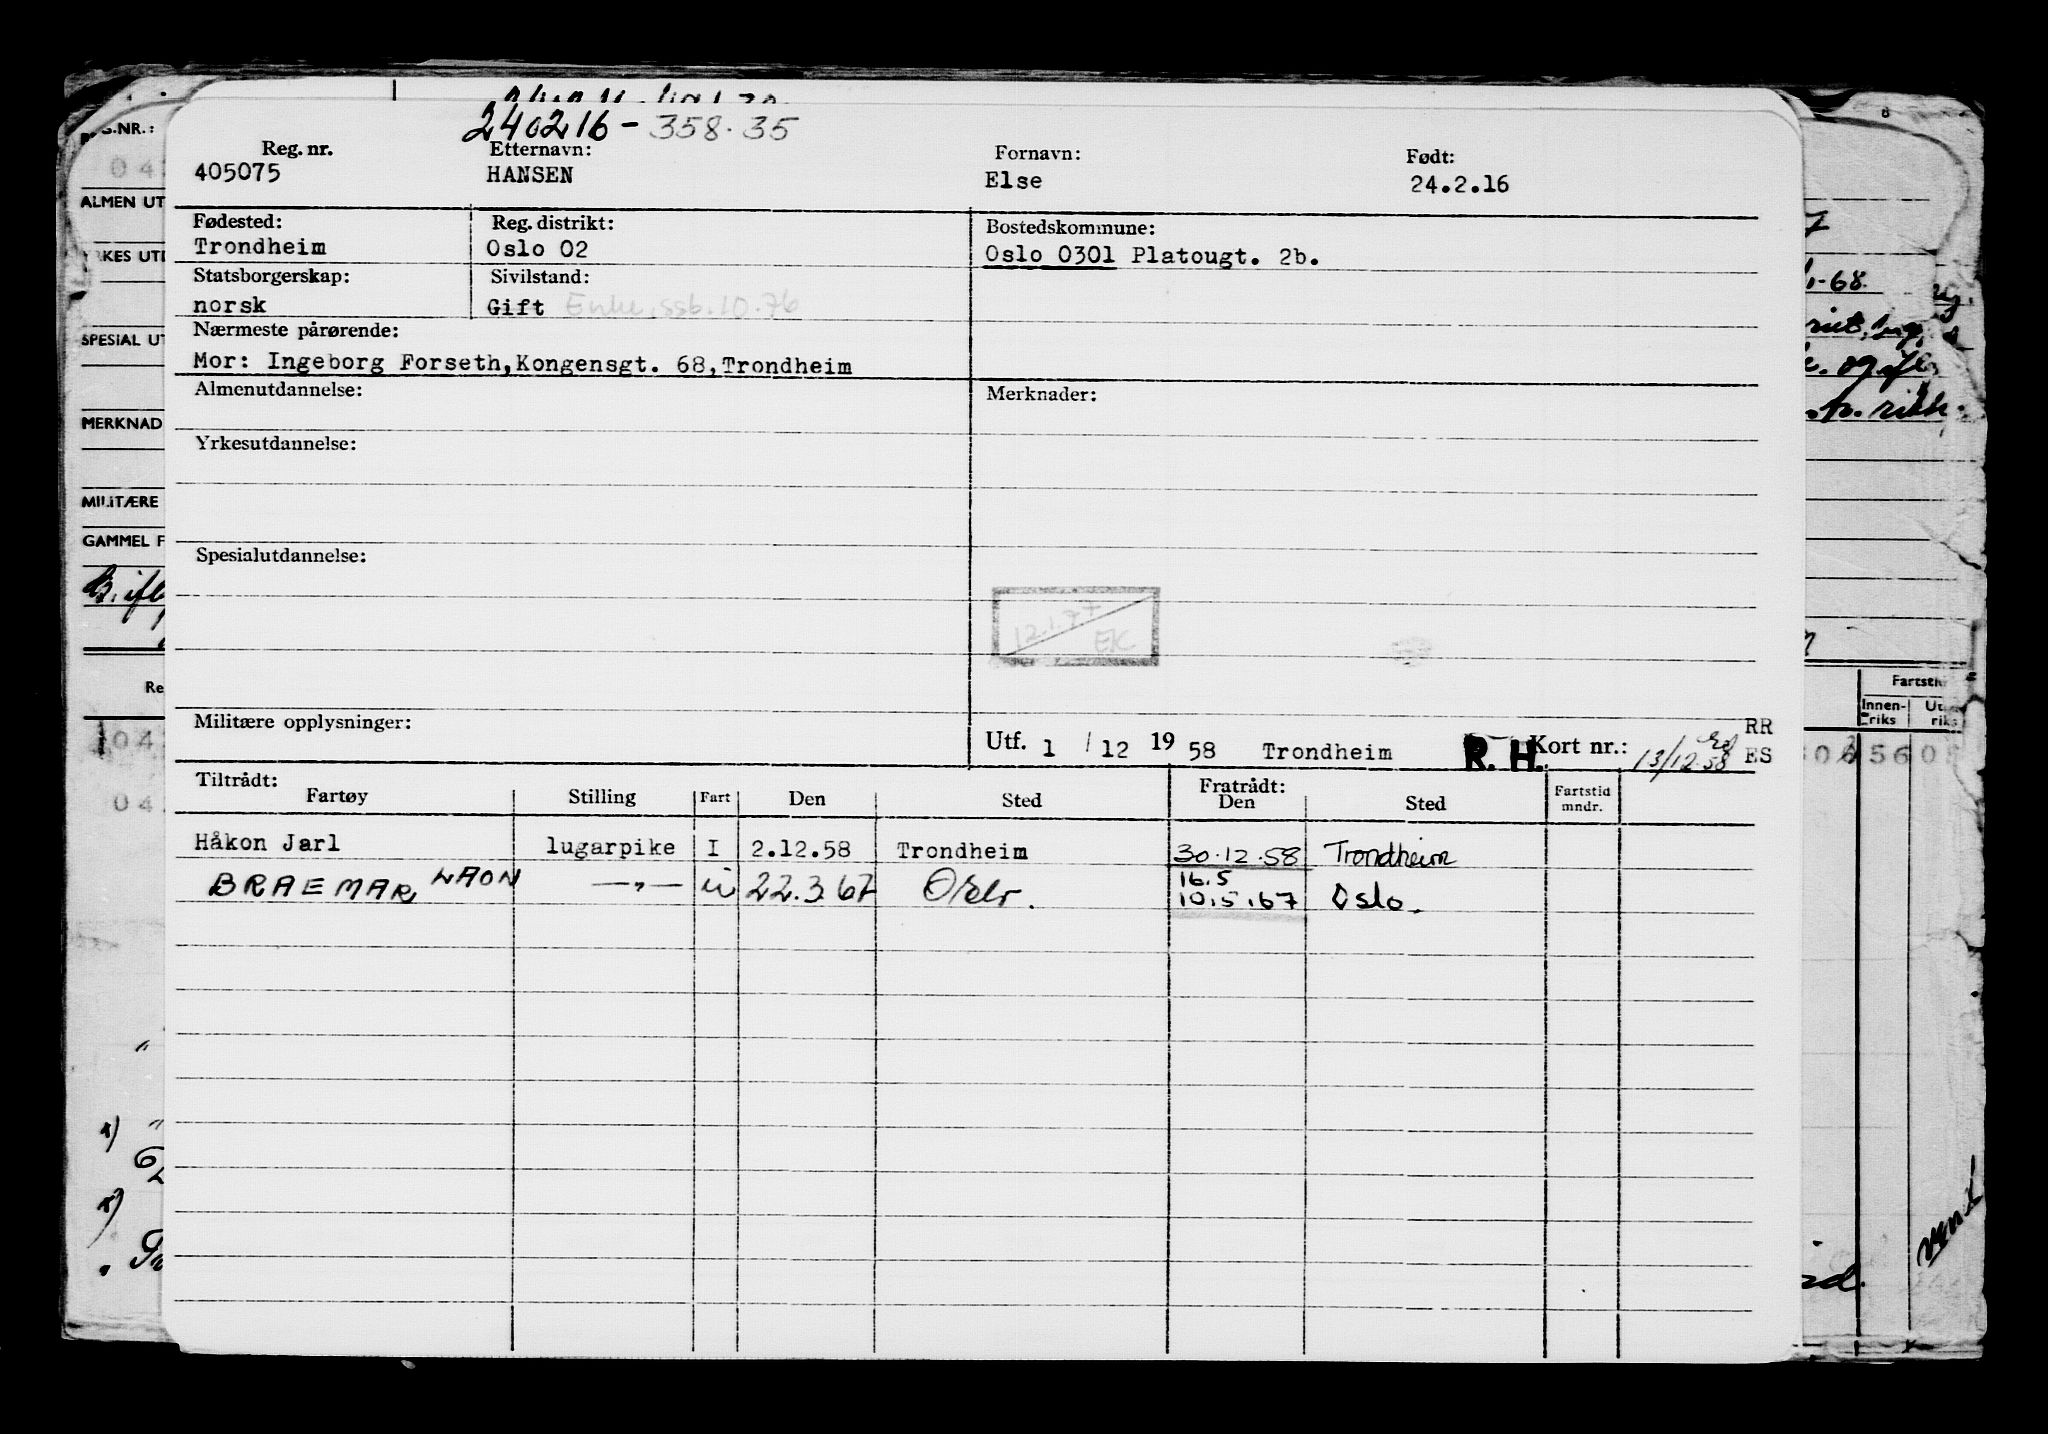 240216-358.35
Reg. nr. Etternavn: Fornavn: Født:
405075 HANSEN Else 24.2.16
Fødested: Reg. distrikt: Bostedskommune:
Trondheim Oslo 02 Oslo 0301 Platougt. 2b.
Statsborgerskap: Sivilstand:
norsk Gift Enke, ssb. 10.76
Nærmeste pårørende:
Mor: Ingeborg Forseth, Kongensgt. 68, Trondheim
Almenutdannelse: Merknader:
Yrkesutdannelse:
Spesialutdannelse:
12.1.77
EK
Militære opplysninger:
Utf. 1 / 12 19 58 Trondheim R. H. Kort nr.: 13/12.58 RR ES
Tiltrådt: Fratrådt:
Fartøy Stilling Fart Den Sted Den Sted Fartstid mndr.
Håkon Jarl lugarpike I 2.12.58 Trondheim 30.12.58 Trondheim
BRAEMAR —„— U 22.3.67 Oslo. 16.5
10.5.67 Oslo.
ALMEN UT
SPESIAL UT
MERKNAD
MILITÆRE
GAMMEL F
Innen-
riks